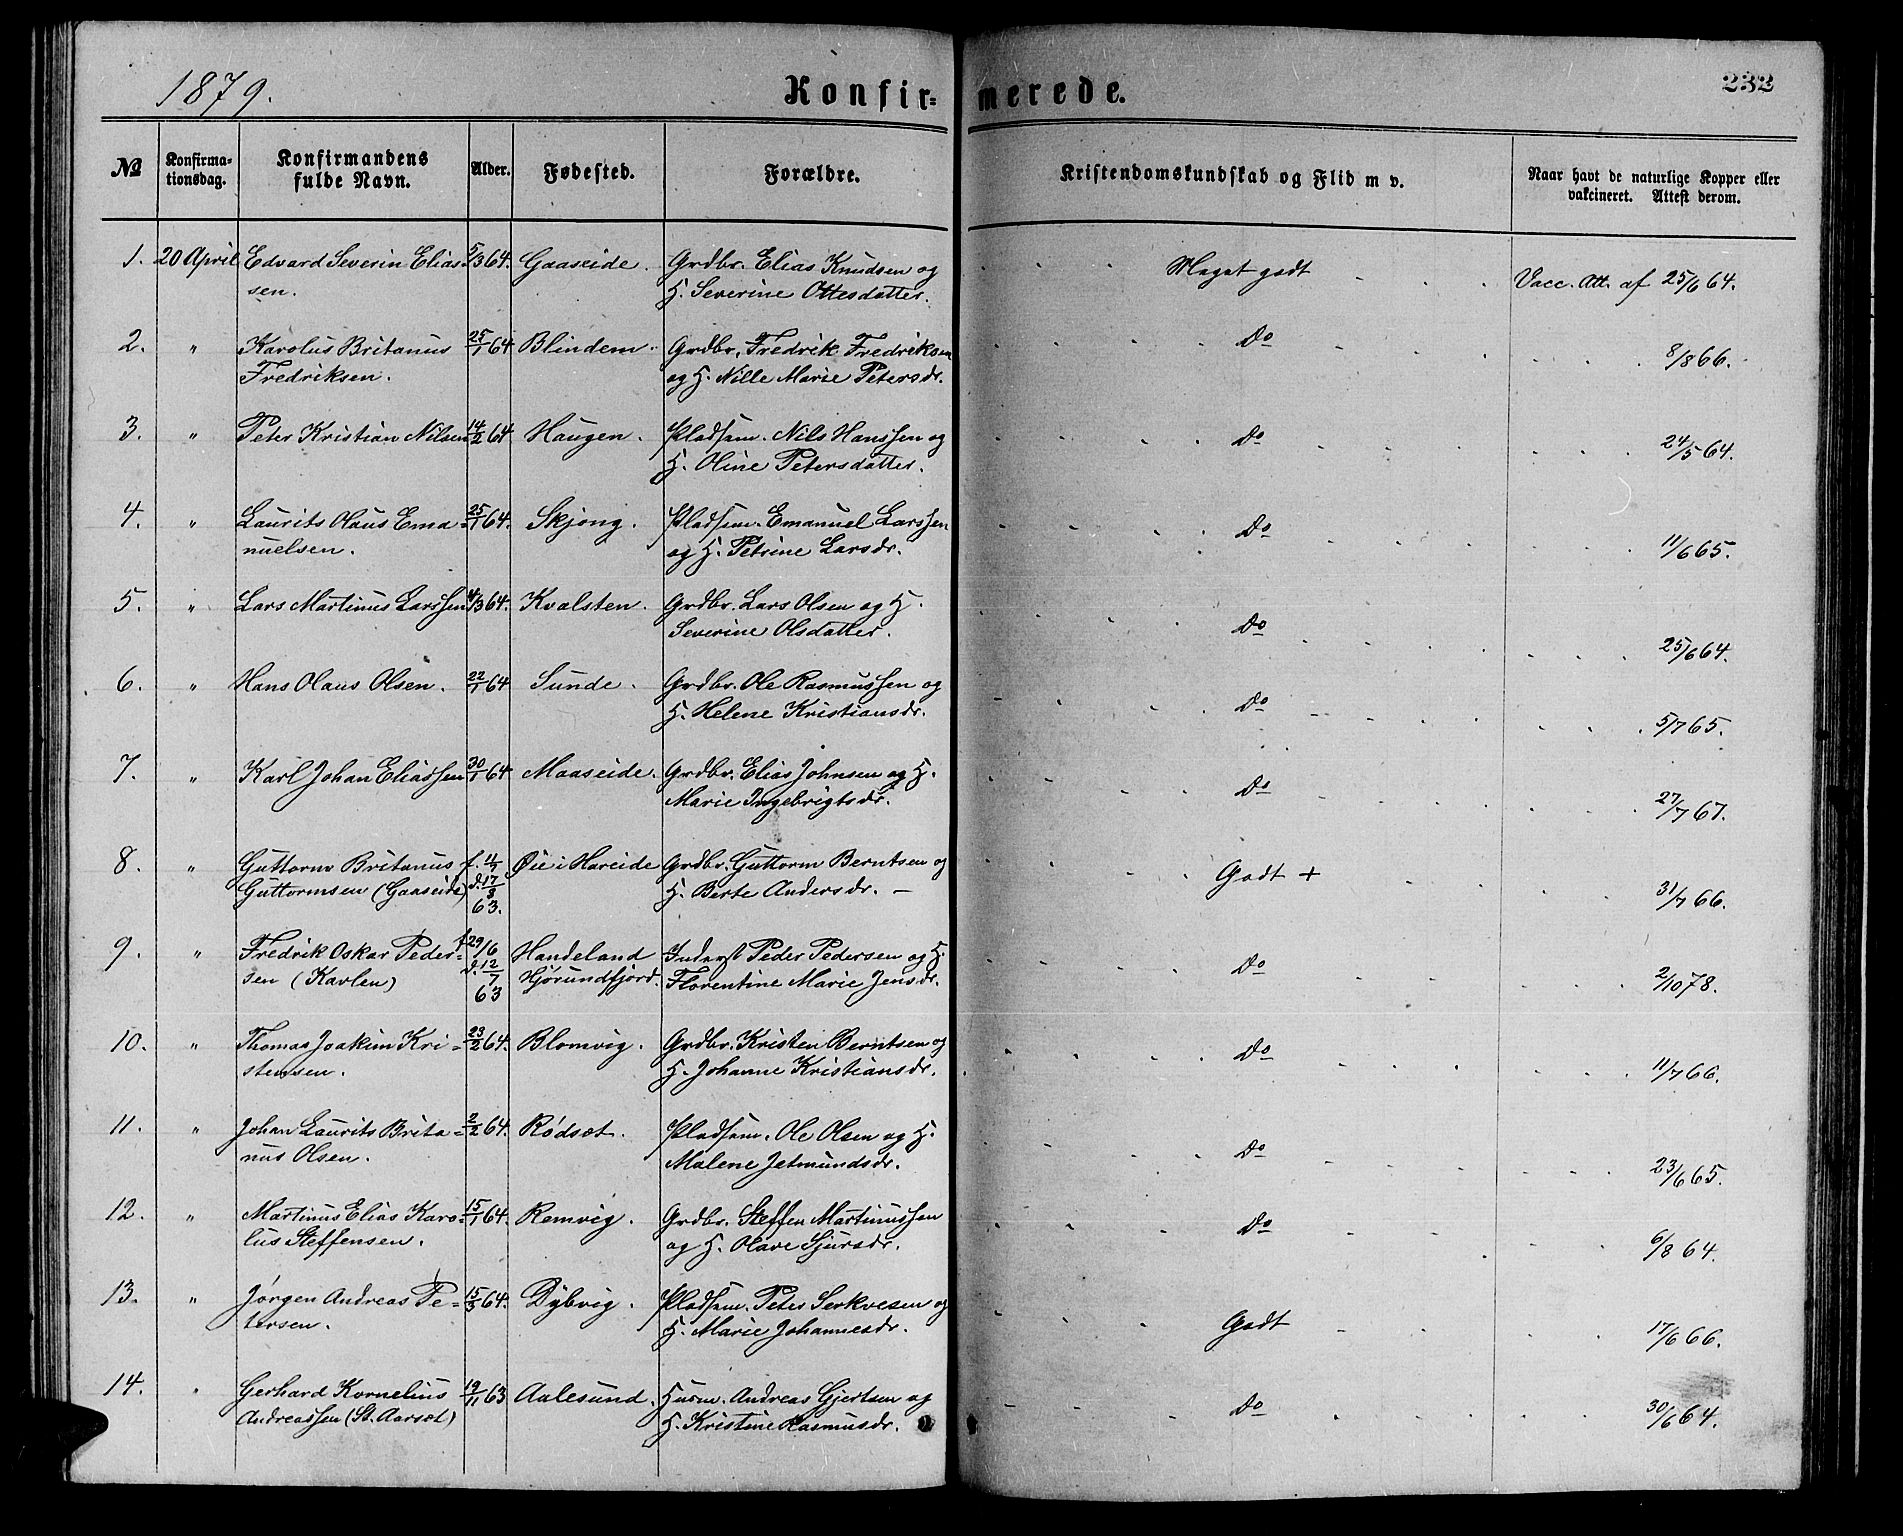 1879.
Konfir=
merede.
232
No
Konfirma-
tionsdag.
Konfirmandens
fulde Navn.
Alder.
Fødested.
Forældre.
Kristendomskundskab og Flid m v.
Naar havt de naturlige Kopper eller
vakcineret. Attest derom.
1. 20 April Edvard Severin Elias- 5/3 64. Gaaseide. Grdbr. Elias Knudsen og Meget godt Vacc. Att. af 25/6 64.
sen. H. Severine Ottesdatter.
2. " Karolus Britanus 25/1 64 Blindem. Grdbr. Fredrik Fredriksen Do 8/8 66.
Fredriksen. og H. Nille Marie Petersdr.
3. " Peter Kristian Nilsen 14/2 64 Haugen. Pladsm. Nils Hanssen og Do 24/5 64.
H. Oline Petersdatter.
4. " Laurits Olaus Ema= 25/1 64. Skjong. Pladsm. Emanuel Larssen Do 11/6 65.
nuelsen. og H. Petrine Larsdr.
5. " Lars Martinus Larssen 4/3 64. Kvalsten. Grdbr. Lars Olsen og H. Do 25/6 64.
Severine Olsdatter.
6. " Hans Olaus Olsen. 22/1 64 Sunde. Grdbr. Ole Rasmussen og Do 5/7 65.
H. Helene Kristiansdr.
7. " Karl Johan Eliassen 30/1 64 Maaseide. Grdbr. Elias Johnsen og H. Do 27/7 67.
Marie Ingebrigtsdr.
8. " Guttorm Britanus f. 4/7 Øie i Hareide Grdbr. Guttorm Berntsen og Godt + 31/7 66.
Guttormsen (Gaaseide) d. 17/8 H. Berte Andersdr. –
63.
9. " Fredrik Oskar Peder= f 29/6 Handeland Inderst Peder Pedersen og H. Do 2/10 78.
sen (Kavlen) d. 12/7 Hjørundfjord. Florentine Marie Jensdr.
63
10. " Thomas Joakim Kri= 23/2 64. Blomvig. Grdbr. Kristen Berntsen og Do 11/7 66.
stensen. H. Johanne Kristiansdr.
11. " Johan Laurits Brita= 2/2 64. Rødset. Pladsm. Ole Olsen og H. Do 23/6 65.
nus Olsen. Malene Jetmundsdr.
12. " Martinus Elias Karo= 15/1 64. Remvig. Grdbr. Steffen Martinussen Do 6/8 64.
lus Steffensen. og H. Olave Sjursdr.
13. " Jørgen Andreas Pe= 15/3 64. Dybvig. Pladsm. Peter Serkvesen og Godt 17/6 66.
tersen. H. Marie Johannesdr.
14. " Gerhard Kornelius 19/11 63 Aalesund. Husm. Andreas Gjertsen og Do 30/6 64.
Andreassen (St. Aarset) H. Kristine Rasmusdr.